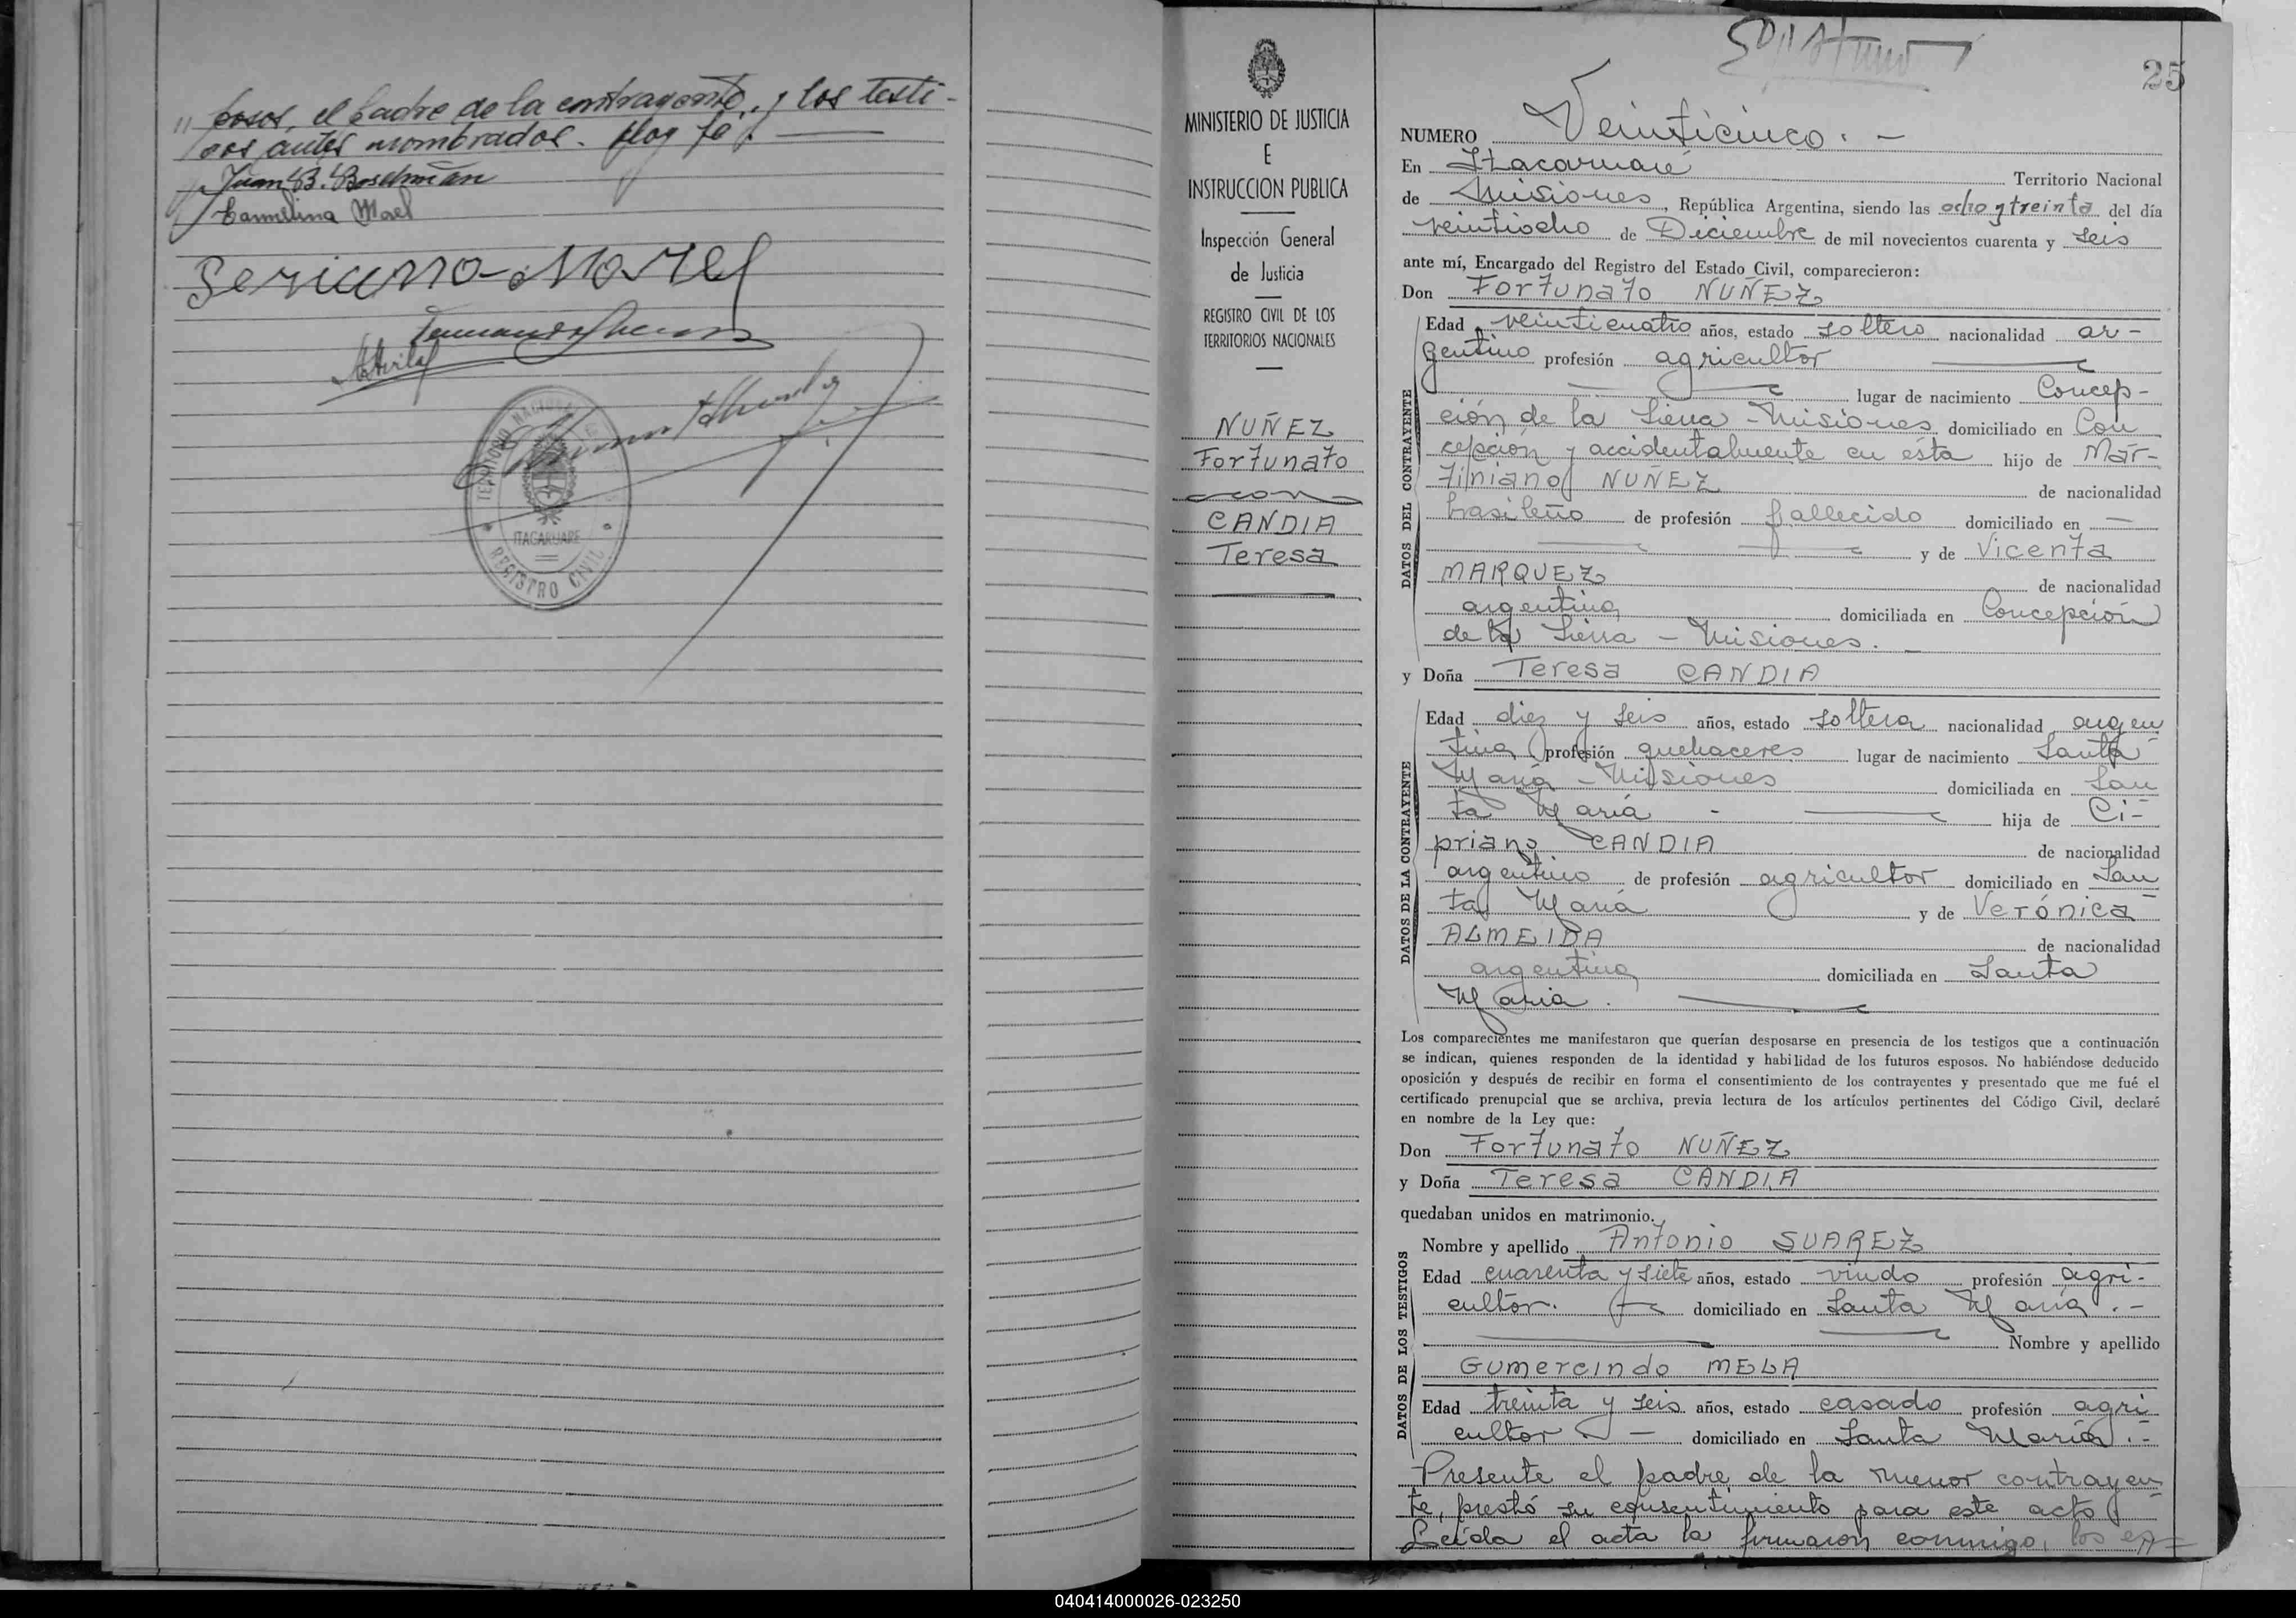 " posos, el padre de la contrayente, y los testi-
gos antes nombrados. doy fé.
Juan B. Boselman
Carmelina Morel
Morel
TERRITORIO NACIONAL
ITACARUARE
REGISTRO CIVIL
MINISTERIO DE JUSTICIA
E
INSTRUCCION PUBLICA
Inspección General
de Justicia
REGISTRO CIVIL DE LOS
TERRITORIOS NACIONALES
NUÑEZ
Fortunato
con
CANDIA
Teresa
25
NUMERO Veinticinco.-
En Itacaruaré Territorio Nacional
de Misiones, República Argentina, siendo las ocho y treinta del día
veintiocho de Diciembre de mil novecientos cuarenta y seis
ante mí, Encargado del Registro del Estado Civil, comparecieron:
Don Fortunato NUÑEZ
DATOS DEL CONTRAYENTE
Edad veinticuatro años, estado soltero nacionalidad ar-
gentino profesión agricultor
lugar de nacimiento Concep-
ción de la Sierra - Misiones domiciliado en Con
cepción y accidentalmente en ésta hijo de Mar-
tiniano NUÑEZ de nacionalidad
brasileño de profesión fallecido domiciliado en —
y de Vicenta
MARQUEZ de nacionalidad
argentina domiciliada en Concepción
de la Sierra - Misiones.-
y Doña Teresa CANDIA
DATOS DE LA CONTRAYENTE
Edad diez y seis años, estado soltera nacionalidad argen
tina profesión quehaceres lugar de nacimiento Santa
María - Misiones domiciliada en San
ta María - hija de Ci-
priano CANDIA de nacionalidad
argentino de profesión agricultor domiciliado en San
ta María y de Verónica
ALMEIDA de nacionalidad
argentina domiciliada en Santa
María.
Los comparecientes me manifestaron que querían desposarse en presencia de los testigos que a continuación
se indican, quienes responden de la identidad y habilidad de los futuros esposos. No habiéndose deducido
oposición y después de recibir en forma el consentimiento de los contrayentes y presentado que me fué el
certificado prenupcial que se archiva, previa lectura de los artículos pertinentes del Código Civil, declaré
en nombre de la Ley que:
Don Fortunato NUÑEZ
y Doña Teresa CANDIA
quedaban unidos en matrimonio.
DATOS DE LOS TESTIGOS
Nombre y apellido Antonio SUAREZ
Edad cuarenta y siete años, estado viudo profesión agri-
cultor. domiciliado en Santa María.-
Nombre y apellido
Gumercindo MELA
Edad treinta y seis años, estado casado profesión agri
cultor - domiciliado en Santa María.-
Presente el padre de la menor contrayen
te, prestó su consentimiento para este acto
Leída el acta la firmaron conmigo, los es=
040414000026-023250